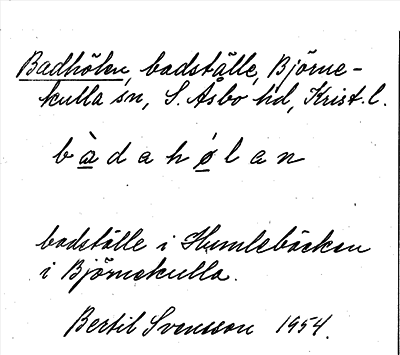 Badhölen, badställe, Björne-
kulla sn, S. Åsbo hd, Krist. l.
bàdahølan
badställe i Humlebäcken
i Björnekulla.
Bertil Svensson 1954.